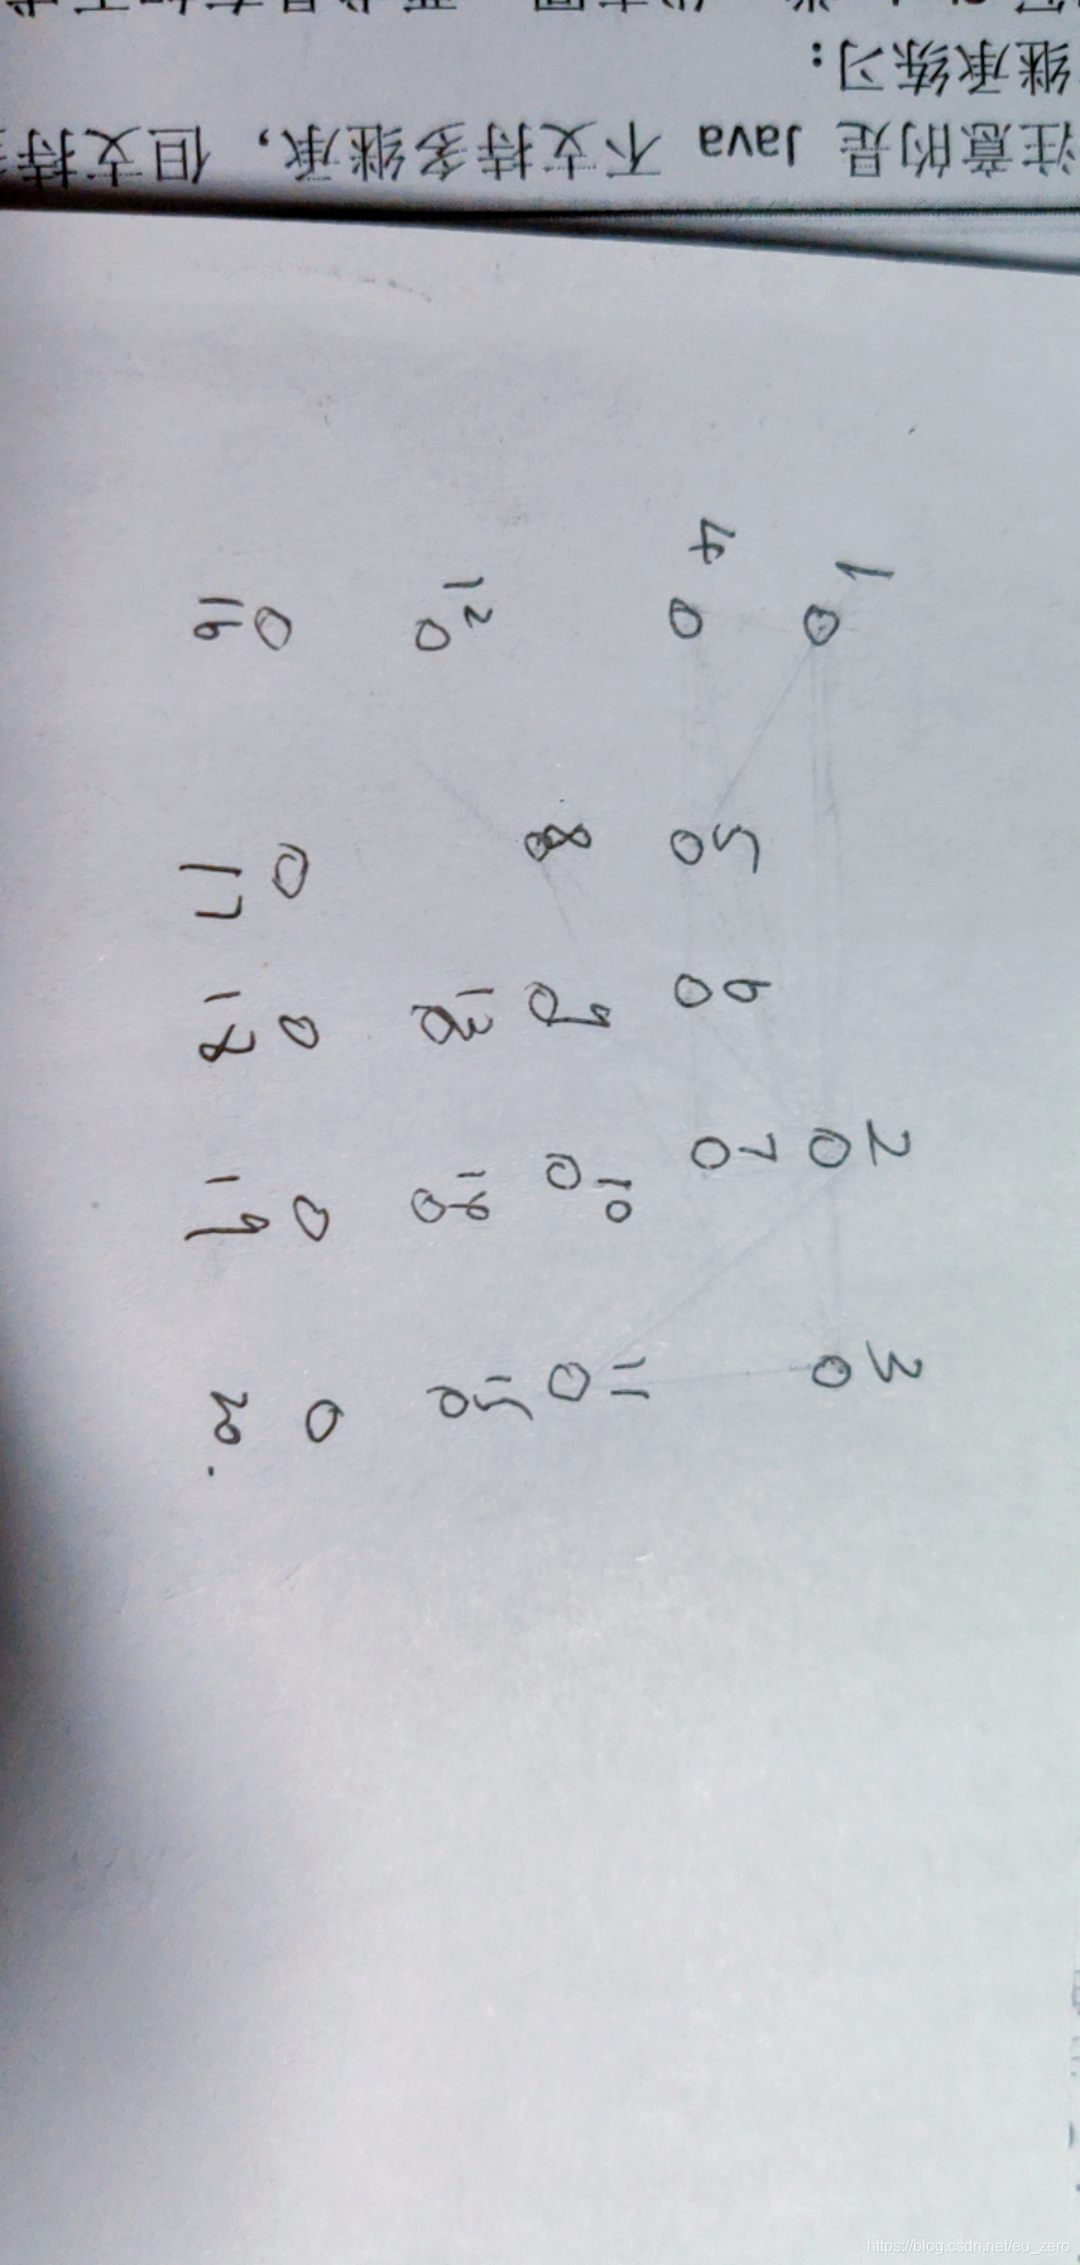 注意的是 Java 不支持多继承，但支持
继承练习：
1 2 3
4 5 6 7
8 9 10 11
12 13 15
16 17 18 19 20.
https://blog.csdn.net/eu_zero